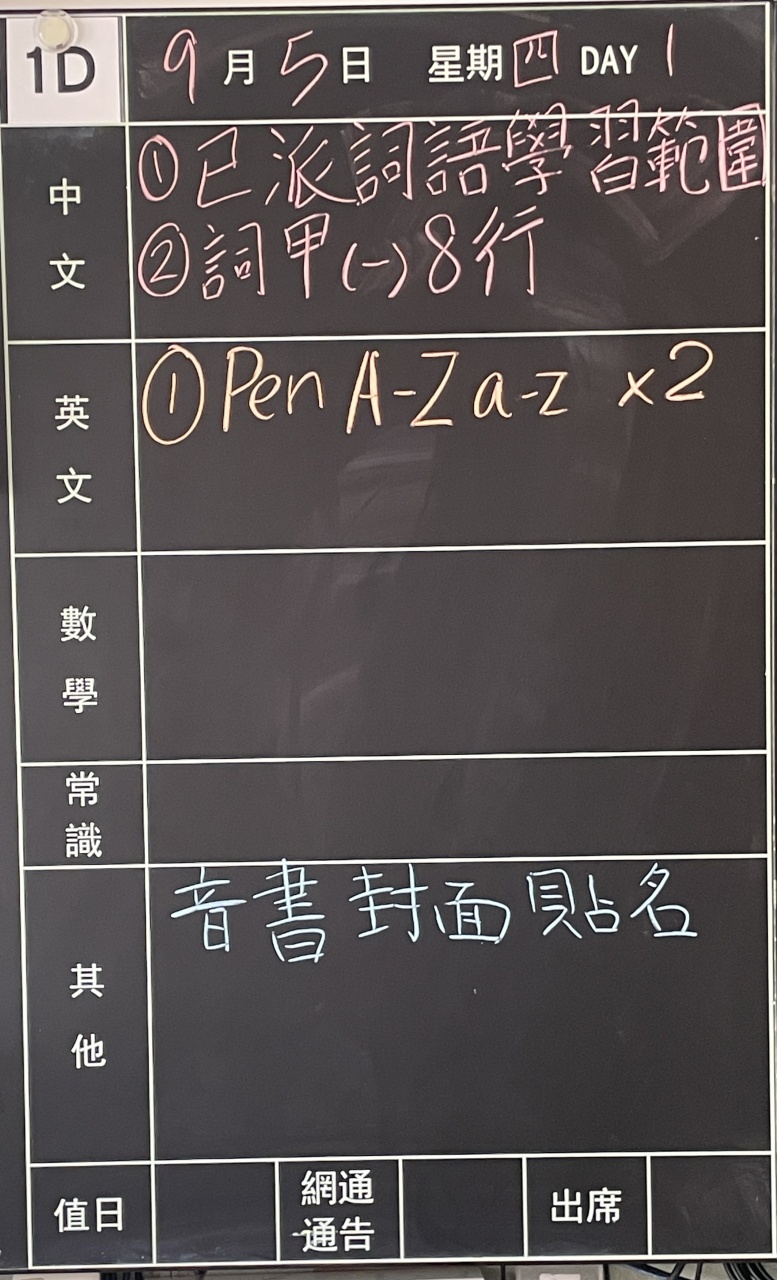 1D
9月5日 星期四 DAY 1
中文
①已派詞語學習範圍
②詞甲(一)8行
英文
①Pen A-Z a-z x2
數學
常識
其他
音書封面貼名
值日
網通
通告
出席